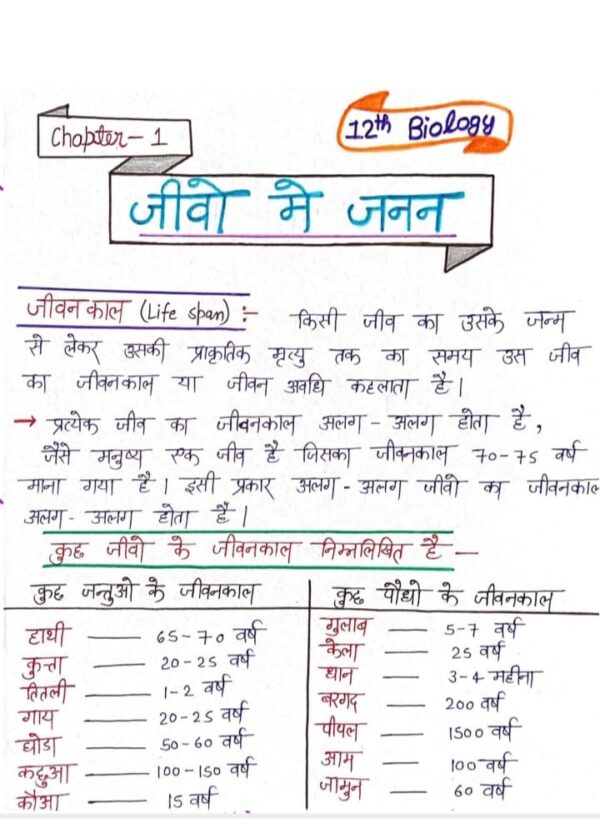 Chapter - 1
12th Biology
जीवो मे जनन
जीवनकाल (Life span) :- किसी जीव का उसके जन्म
से लेकर उसकी प्राकृतिक मृत्यु तक का समय उस जीव
का जीवनकाल या जीवन अवधि कहलाता है।
→ प्रत्येक जीव का जीवनकाल अलग-अलग होता है,
जैसे मनुष्य एक जीव है जिसका जीवनकाल 70-75 वर्ष
माना गया है। इसी प्रकार अलग-अलग जीवो का जीवनकाल
अलग-अलग होता है।
कुछ जीवो के जीवनकाल निम्नलिखित है —
कुछ जन्तुओ के जीवनकाल
हाथी — 65-70 वर्ष
कुत्ता — 20-25 वर्ष
तितली — 1-2 वर्ष
गाय — 20-25 वर्ष
घोडा — 50-60 वर्ष
कछुआ — 100-150 वर्ष
कौआ — 15 वर्ष
कुछ पौधो के जीवनकाल
गुलाब — 5-7 वर्ष
केला — 25 वर्ष
धान — 3-4 महीना
बरगद — 200 वर्ष
पीपल — 1500 वर्ष
आम — 100 वर्ष
जामुन — 60 वर्ष